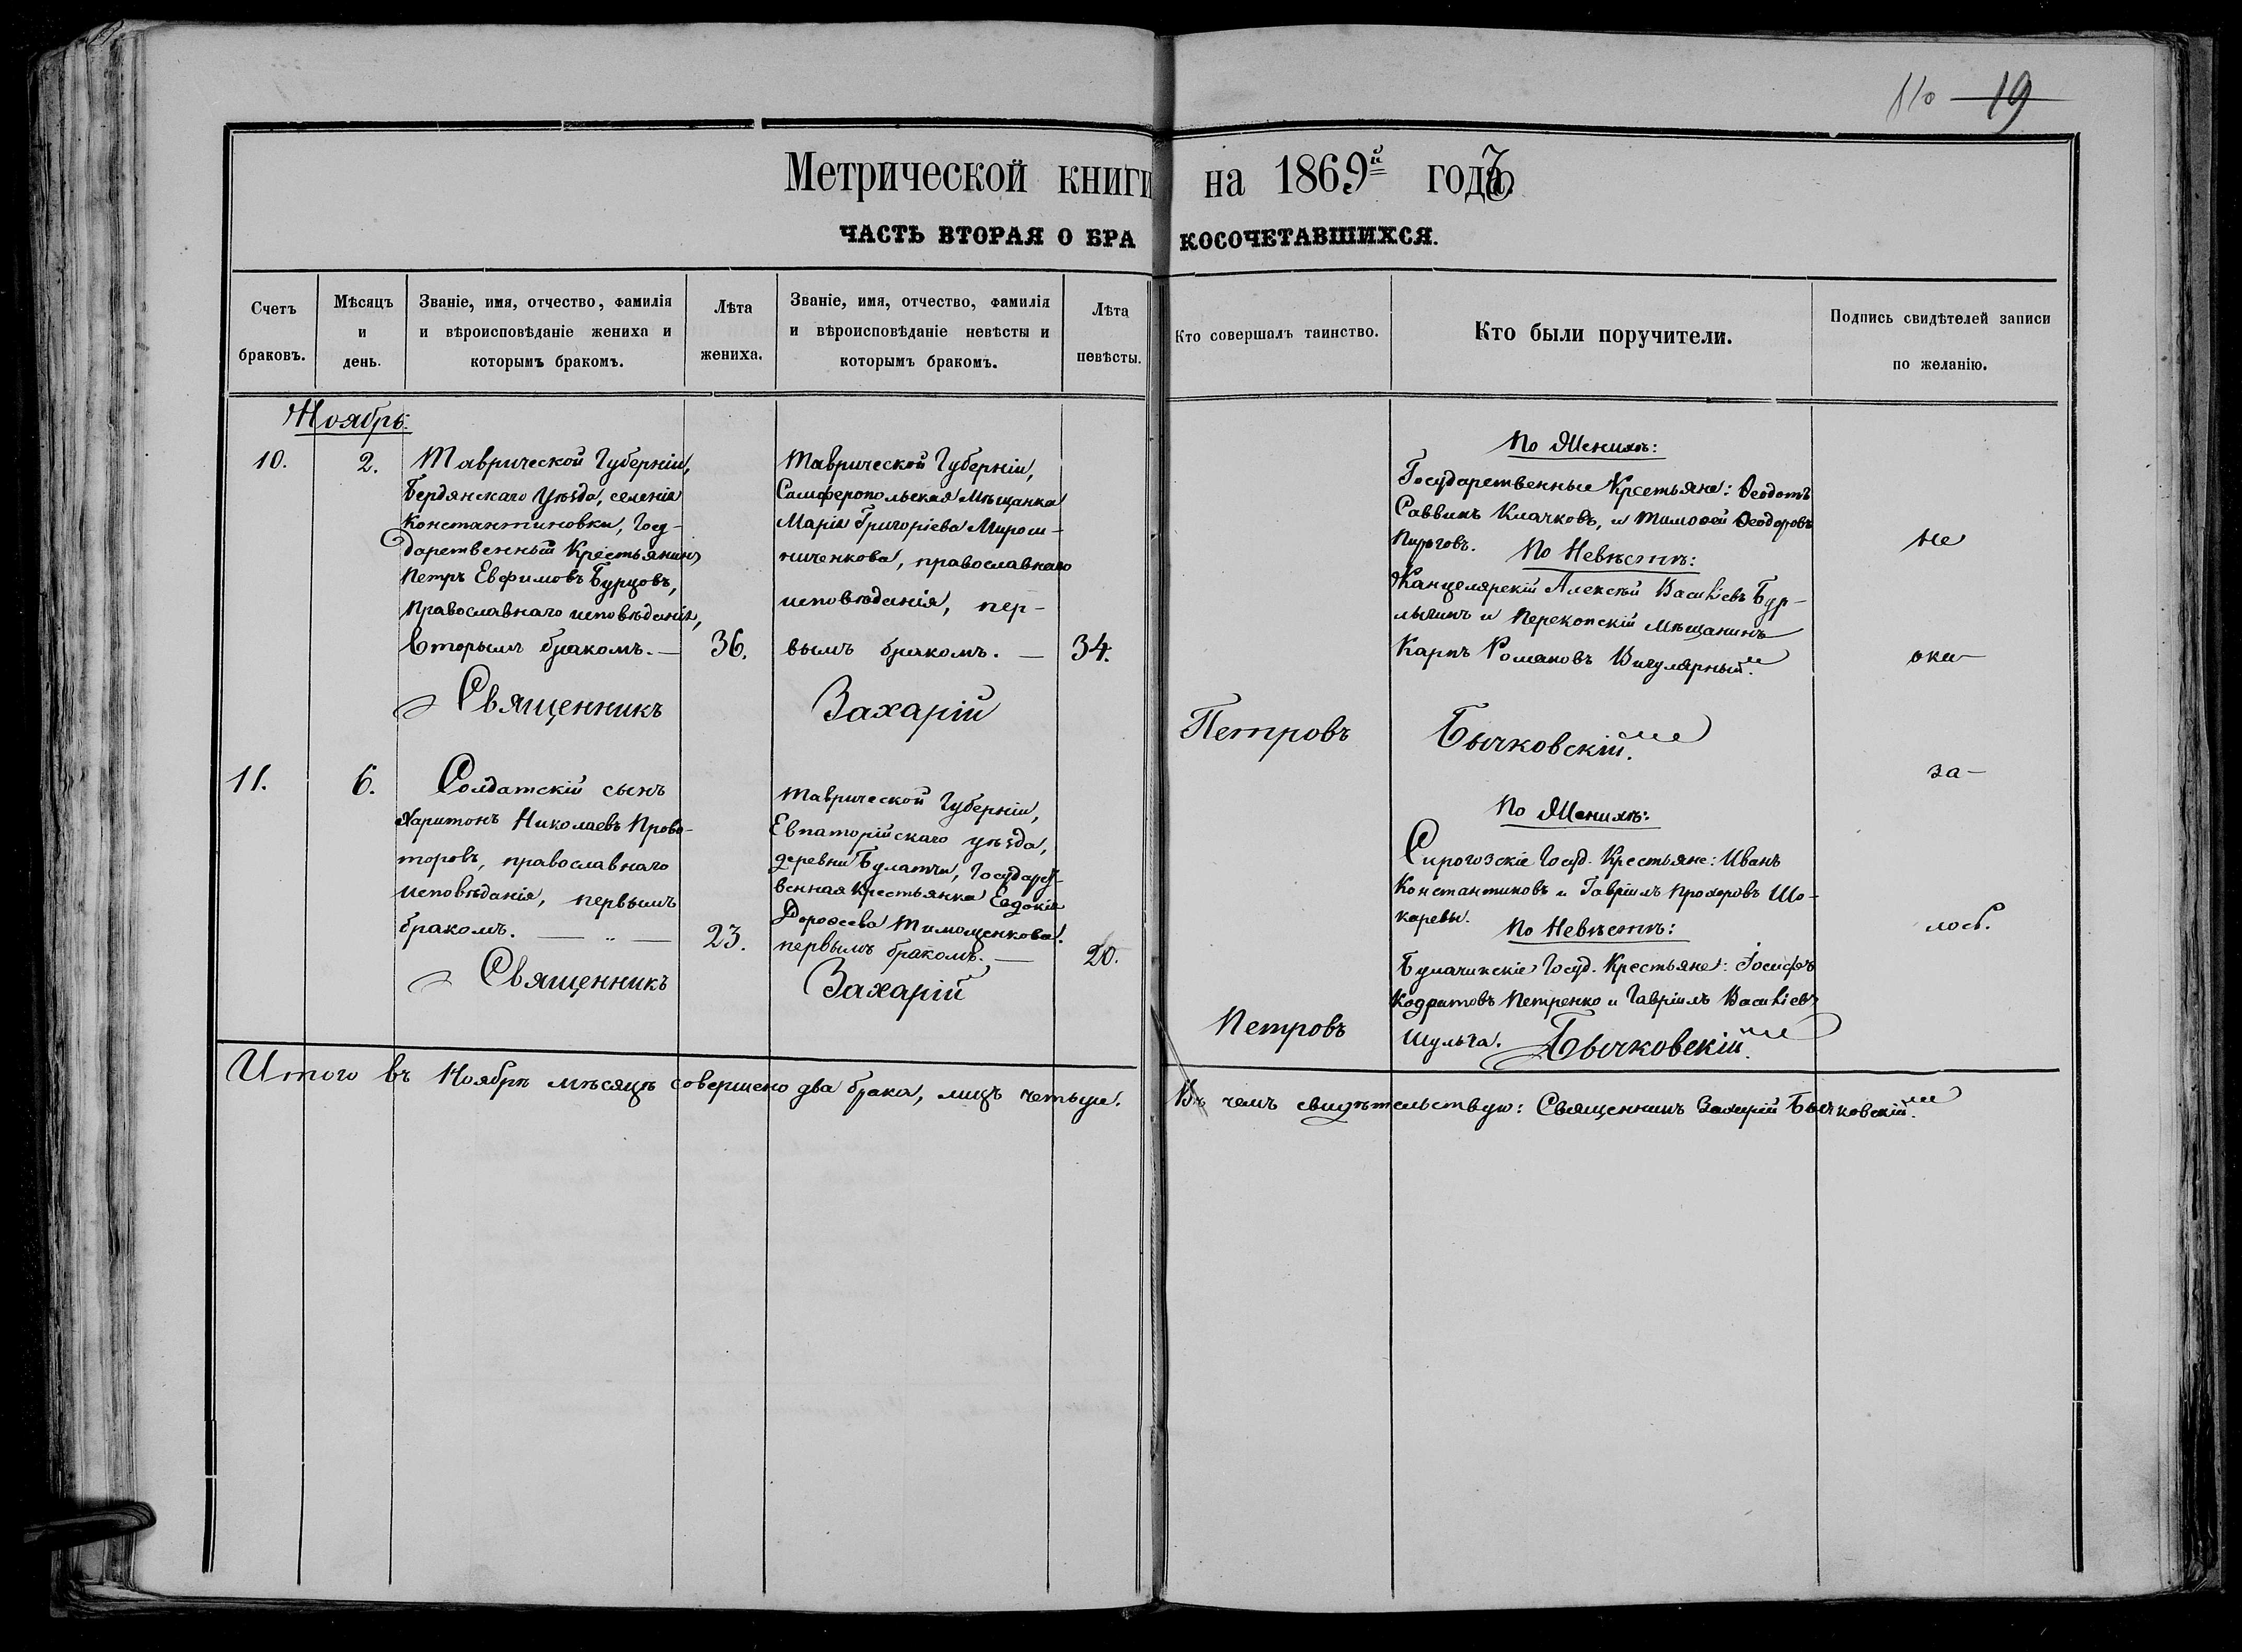 110 19
Метрической книги на 1869й годъ
ЧАСТЬ ВТОРАЯ О БРАКОСОЧЕТАВШИХСЯ.
Счетъ браковъ.
Мѣсяцъ и день.
Званіе, имя, отчество, фамилія и вѣроисповѣданіе жениха и которымъ бракомъ.
Лѣта жениха.
Званіе, имя, отчество, фамилія и вѣроисповѣданіе невѣсты и которымъ бракомъ.
Лѣта невѣсты.
Кто совершалъ таинство.
Кто были поручители.
Подпись свидѣтелей записи по желанію.
Ноябрь.
10.
2.
Таврической Губерніи,
Бердянскаго Уѣзда, селенія
Константиновки, Госу-
дарственный Крестьянинъ
Петръ Евфимовъ Бурцовъ,
православнаго исповѣданія,
вторымъ бракомъ. —
36.
Таврической Губерніи,
Симферопольская Мѣщанка
Марія Григоріева Мирош-
ниченкова, православнаго
исповѣданія, пер-
вымъ бракомъ. —
34.
По Женихѣ:
Государственные Крестьяне: Ѳеодотъ
Саввинъ Клачковъ, и Тимоѳей Ѳеодоровъ
Пироговъ. По Невѣстѣ:
Канцелярскій Алексѣй Васильевъ Бур-
лыминъ и Перекопскій Мѣщанинъ
Карпъ Романовъ
не
ока-
за-
лось.
Священникъ Захарій Петровъ Бычковскій.
11.
6.
Солдатскій сынъ
Харитонъ Николаевъ Прово-
торовъ, православнаго
исповѣданія, первымъ
бракомъ. — „ —
23.
Таврической Губерніи,
Евпаторійскаго уѣзда,
деревни Булатчи, Государст-
венная крестьянка Евдокія
Дороѳеева Тимощенкова.
первымъ бракомъ. —
20.
По Женихѣ:
Сирогозскіе Госуд. Крестьяне: Иванъ
Константиновъ и Гавріилъ Прохоровъ Шо-
каревы. По Невѣстѣ:
Госуд. Крестьяне: Іосифъ
Кодратовъ Петренко и Гавріилъ Васильевъ
Шульга.
Священникъ Захарій Петровъ Бычковскій.
Итого въ Ноябрѣ мѣсяцѣ совершено два брака, лицъ четыре. Въ чемъ свидѣтельствую: Священникъ Захарій Бычковскій.